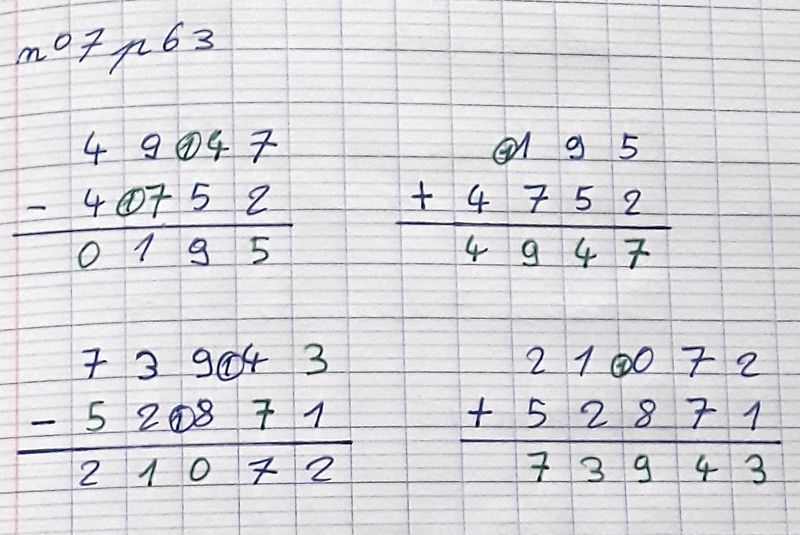 n° 7 p 63
4 9 ①4 7      ①1 9 5
- 4 ①7 5 2      + 4 7 5 2
0 1 9 5      4 9 4 7
7 3 9 ①4 3      2 1 ①0 7 2
- 5 2 ①8 7 1      + 5 2 8 7 1
2 1 0 7 2      7 3 9 4 3